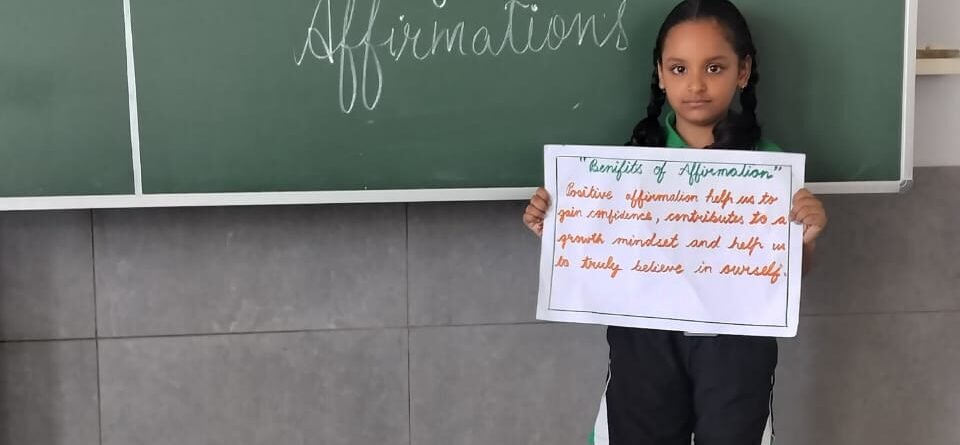 Affirmations
"Benifits of Affirmation"
Positive affirmation help us to
gain confidence, contributes to a
growth mindset and help us
to truly believe in ourself.